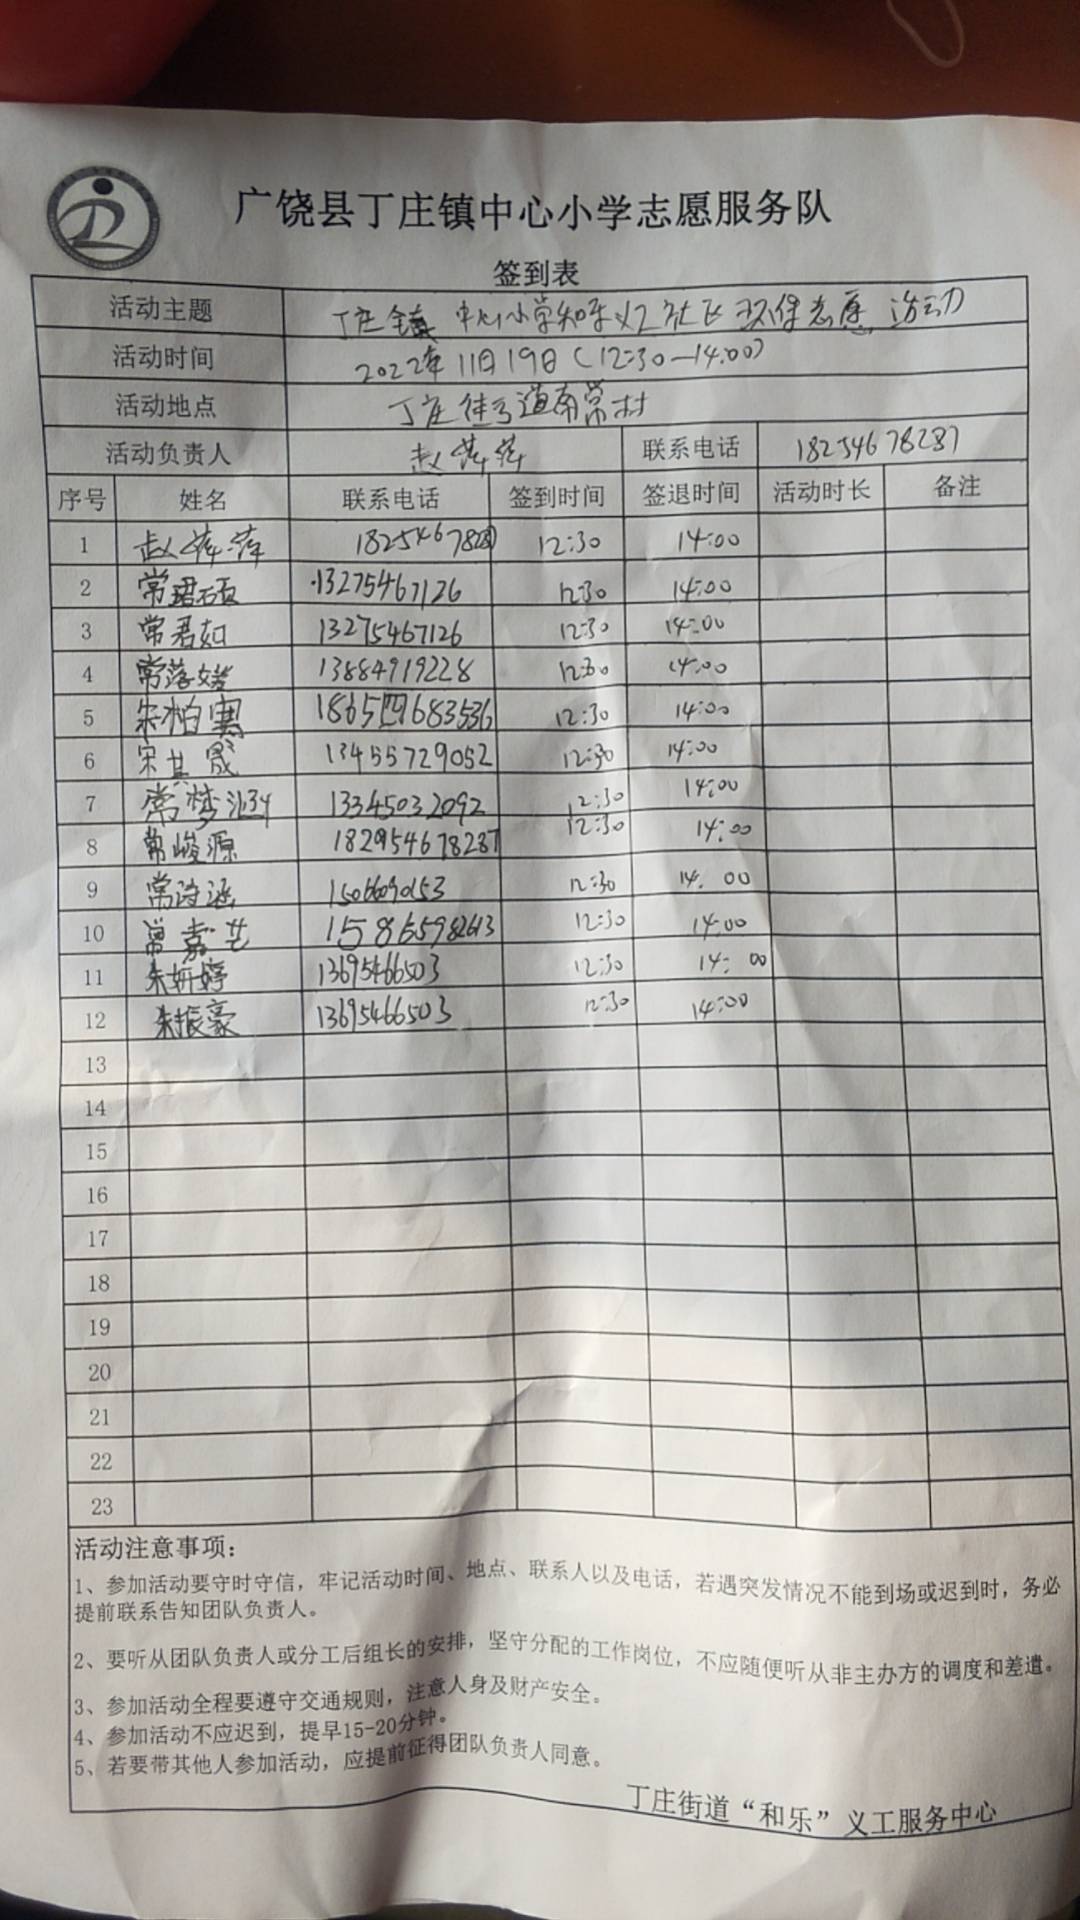 广饶县丁庄镇中心小学志愿服务队
签到表
活动主题 丁庄镇中心小学和乐义工社区环保志愿活动
活动时间 2022年11月19日(12:30—14:00)
活动地点 丁庄街道南常村
活动负责人 赵萍萍 联系电话 18254678287
序号 姓名 联系电话 签到时间 签退时间 活动时长 备注
1 赵萍萍 12:30 14:00
2 常珺硕 13275467126 12:30 14:00
3 常君如 13275467126 12:30 14:00
4 常落媛 13884919228 12:30 14:00
5 宋柏寯 12:30 14:00
6 宋其晟 13455729052 12:30 14:00
7 常梦涵 13345032092 12:30 14:00
8 常峻源 182954678287 12:30 14:00
9 常诗涵 12:30 14:00
10 常嘉艺 12:30 14:00
11 朱妍婷 13695466503 12:30 14:00
12 朱振豪 13695466503 12:30 14:00
13
14
15
16
17
18
19
20
21
22
23
活动注意事项:
1、参加活动要守时守信，牢记活动时间、地点、联系人以及电话，若遇突发情况不能到场或迟到时，务必
提前联系告知团队负责人。
2、要听从团队负责人或分工后组长的安排，坚守分配的工作岗位，不应随便听从非主办方的调度和差遣。
3、参加活动全程要遵守交通规则，注意人身及财产安全。
4、参加活动不应迟到，提早15-20分钟。
5、若要带其他人参加活动，应提前征得团队负责人同意。
丁庄街道“和乐”义工服务中心